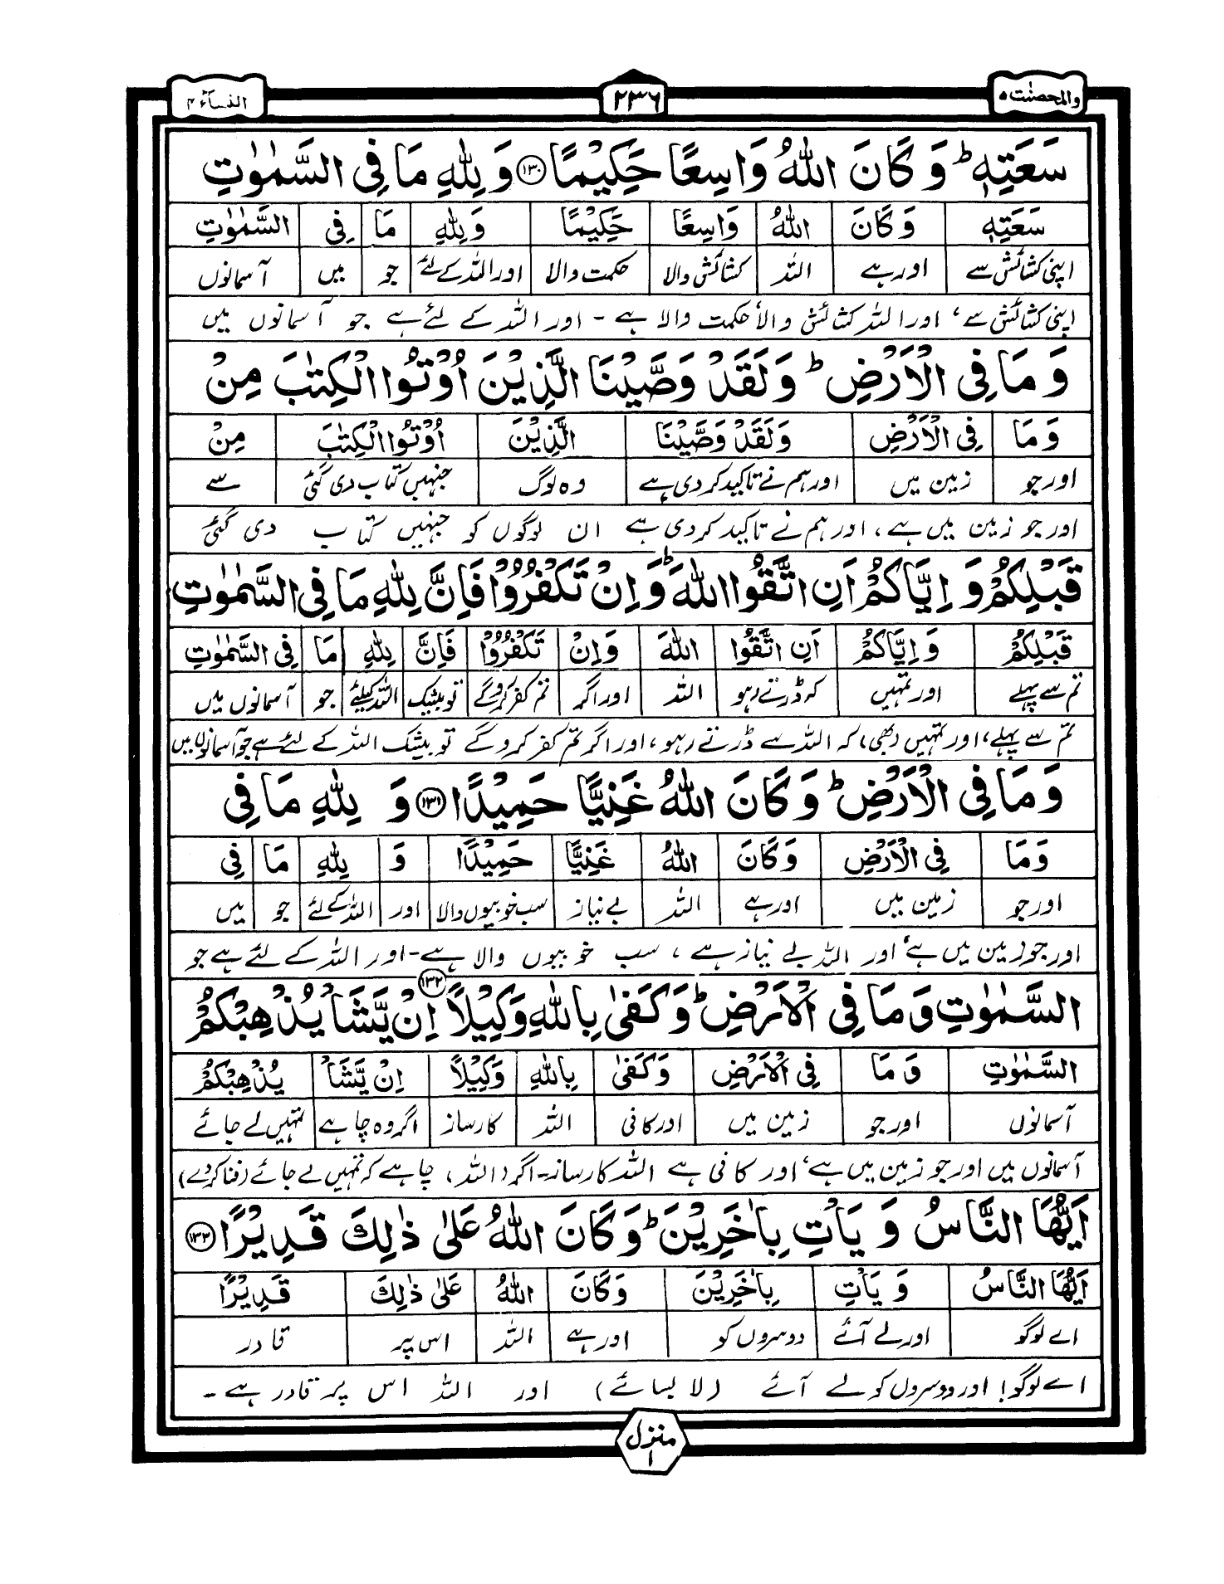 والمحصنت ۵
۲۳۶
النساء ۴
سَعَتِهٖ ؕ وَ كَانَ اللّٰهُ وَاسِعًا حَكِيْمًا ﴿۱۳۰﴾ وَ لِلّٰهِ مَا فِى السَّمٰوٰتِ
سَعَتِهٖ وَ كَانَ اللّٰهُ وَاسِعًا حَكِيْمًا وَ لِلّٰهِ مَا فِى السَّمٰوٰتِ
اپنی کشائش سے اور ہے اللہ کشائش والا حکمت والا اور اللہ کے لئے جو میں آسمانوں
اپنی کشائش سے، اور اللہ کشائش والا حکمت والا ہے - اور اللہ کے لئے ہے جو آسمانوں میں
وَ مَا فِى الْاَرْضِ ؕ وَ لَقَدْ وَصَّيْنَا الَّذِيْنَ اُوْتُوا الْكِتٰبَ مِنْ
وَ مَا فِى الْاَرْضِ وَ لَقَدْ وَصَّيْنَا الَّذِيْنَ اُوْتُوا الْكِتٰبَ مِنْ
اور جو زمین میں اور ہم نے تاکید کر دی ہے وہ لوگ جنہیں کتاب دی گئی سے
اور جو زمین میں ہے، اور ہم نے تاکید کر دی ہے ان لوگوں کو جنہیں کتاب دی گئی
قَبْلِكُمْ وَ اِيَّاكُمْ اَنِ اتَّقُوا اللّٰهَ ؕ وَ اِنْ تَكْفُرُوْا فَاِنَّ لِلّٰهِ مَا فِى السَّمٰوٰتِ
قَبْلِكُمْ وَ اِيَّاكُمْ اَنِ اتَّقُوا اللّٰهَ وَ اِنْ تَكْفُرُوْا فَاِنَّ لِلّٰهِ مَا فِى السَّمٰوٰتِ
تم سے پہلے اور تمہیں کہ ڈرتے رہو اللہ اور اگر تم کفر کرو گے تو بیشک اللہ کیلئے جو آسمانوں میں
تم سے پہلے، اور تمہیں بھی، کہ اللہ سے ڈرتے رہو، اور اگر تم کفر کرو گے تو بیشک اللہ کے لئے ہے جو آسمانوں میں
وَ مَا فِى الْاَرْضِ ؕ وَ كَانَ اللّٰهُ غَنِيًّا حَمِيْدًا ﴿۱۳۱﴾ وَ لِلّٰهِ مَا فِى
وَ مَا فِى الْاَرْضِ وَ كَانَ اللّٰهُ غَنِيًّا حَمِيْدًا وَ لِلّٰهِ مَا فِى
اور جو زمین میں اور ہے اللہ بے نیاز سب خوبیوں والا اور اللہ کے لئے جو میں
اور جو زمین میں ہے، اور اللہ بے نیاز ہے، سب خوبیوں والا ہے - اور اللہ کے لئے ہے جو
السَّمٰوٰتِ وَ مَا فِى الْاَرْضِ ؕ وَ كَفٰى بِاللّٰهِ وَكِيْلًا ﴿۱۳۲﴾ اِنْ يَّشَاْ يُذْهِبْكُمْ
السَّمٰوٰتِ وَ مَا فِى الْاَرْضِ وَ كَفٰى بِاللّٰهِ وَكِيْلًا اِنْ يَّشَاْ يُذْهِبْكُمْ
آسمانوں اور جو زمین میں اور کافی اللہ کارساز اگر وہ چاہے تمہیں لے جائے
آسمانوں میں اور جو زمین میں ہے، اور کافی ہے اللہ کارساز - اگر (اللہ) چاہے کہ تمہیں لے جائے (فنا کردے)
اَيُّهَا النَّاسُ وَ يَاْتِ بِاٰخَرِيْنَ ؕ وَ كَانَ اللّٰهُ عَلٰى ذٰلِكَ قَدِيْرًا ﴿۱۳۳﴾
اَيُّهَا النَّاسُ وَ يَاْتِ بِاٰخَرِيْنَ وَ كَانَ اللّٰهُ عَلٰى ذٰلِكَ قَدِيْرًا
اے لوگو اور لے آئے دوسروں کو اور ہے اللہ اس پر قادر
اے لوگو! اور دوسروں کو لے آئے (لا بسائے) اور اللہ اس پر قادر ہے -
منزل
۱